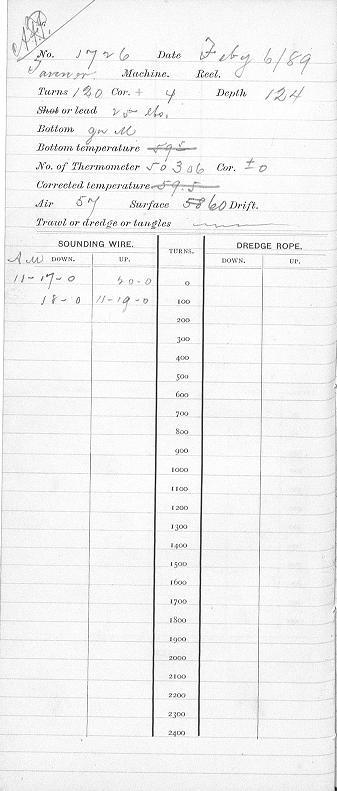 No. 1726 Date Feby 6/89
Tanner Machine. Reel.
Turns 120 Cor. + 4 Depth 124
Shot or lead 25 lbs.
Bottom gn M
Bottom temperature 59.5
No. of Thermometer 50306 Cor. ± 0
Corrected temperature 59.5
Air 57 Surface 58 60 Drift.
Trawl or dredge or tangles
SOUNDING WIRE. TURNS. DREDGE ROPE.
A M DOWN. UP. DOWN. UP.
11-17-0 20-0 0
18-0 11-19-0 100
200
300
400
500
600
700
800
900
1000
1100
1200
1300
1400
1500
1600
1700
1800
1900
2000
2100
2200
2300
2400